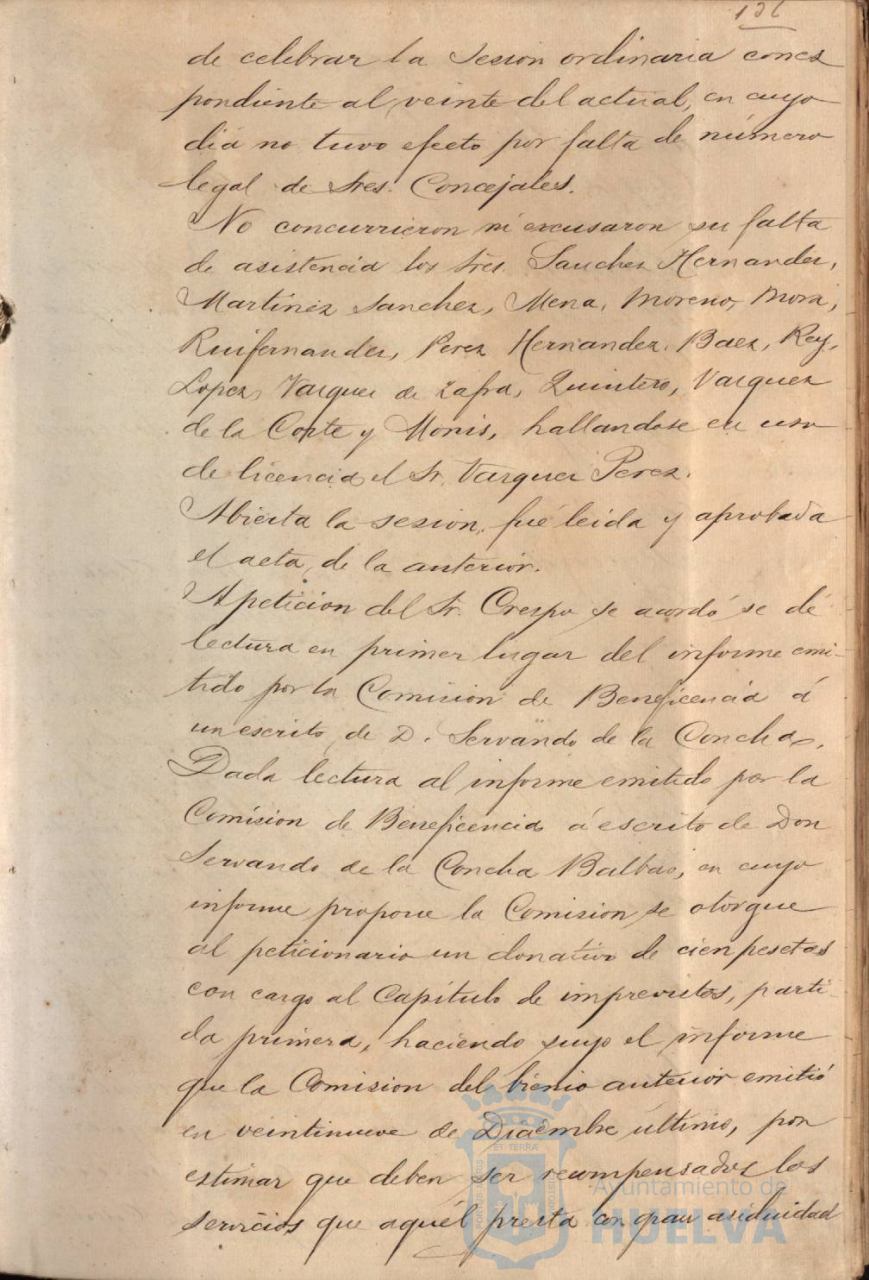 136
de celebrar la sesion ordinaria corres
pondiente al veinte del actual, en cuyo
dia no tuvo efecto por falta de número
legal de Sres. Concejales.
No concurrieron ni excusaron su falta
de asistencia los Sres. Sanchez Hernandez,
Martinez Sanchez, Mena, Moreno, Mora,
Ruifernandez, Perez Hernandez, Baez, Rey,
Lopez, Vazquez de Zafra, Quintero, Vazquez
de la Corte y Monis, hallandose en uso
de licencia el Sr. Vazquez Perez.
Abierta la sesion, fué leida y aprobada
el acta, de la anterior.
A peticion del Sr. Crespo se acordó se dé
lectura en primer lugar del informe emi-
tido por la Comision de Beneficencia á
un escrito de D. Servando de la Concha.
Dada lectura al informe emitido por la
Comision de Beneficencia á escrito de Don
Servando de la Concha Balbas, en cuyo
informe propone la Comision se otorgue
al peticionario un donativo de cien pesetas
con cargo al Capítulo de imprevistos, parti-
da primera, haciendo suyo el informe
que la Comision del bienio anterior emitió
en veintinueve de Diciembre último, por
estimar que deben ser recompensados los
servicios que aquél presta con gran asiduidad
Ayuntamiento de
HUELVA